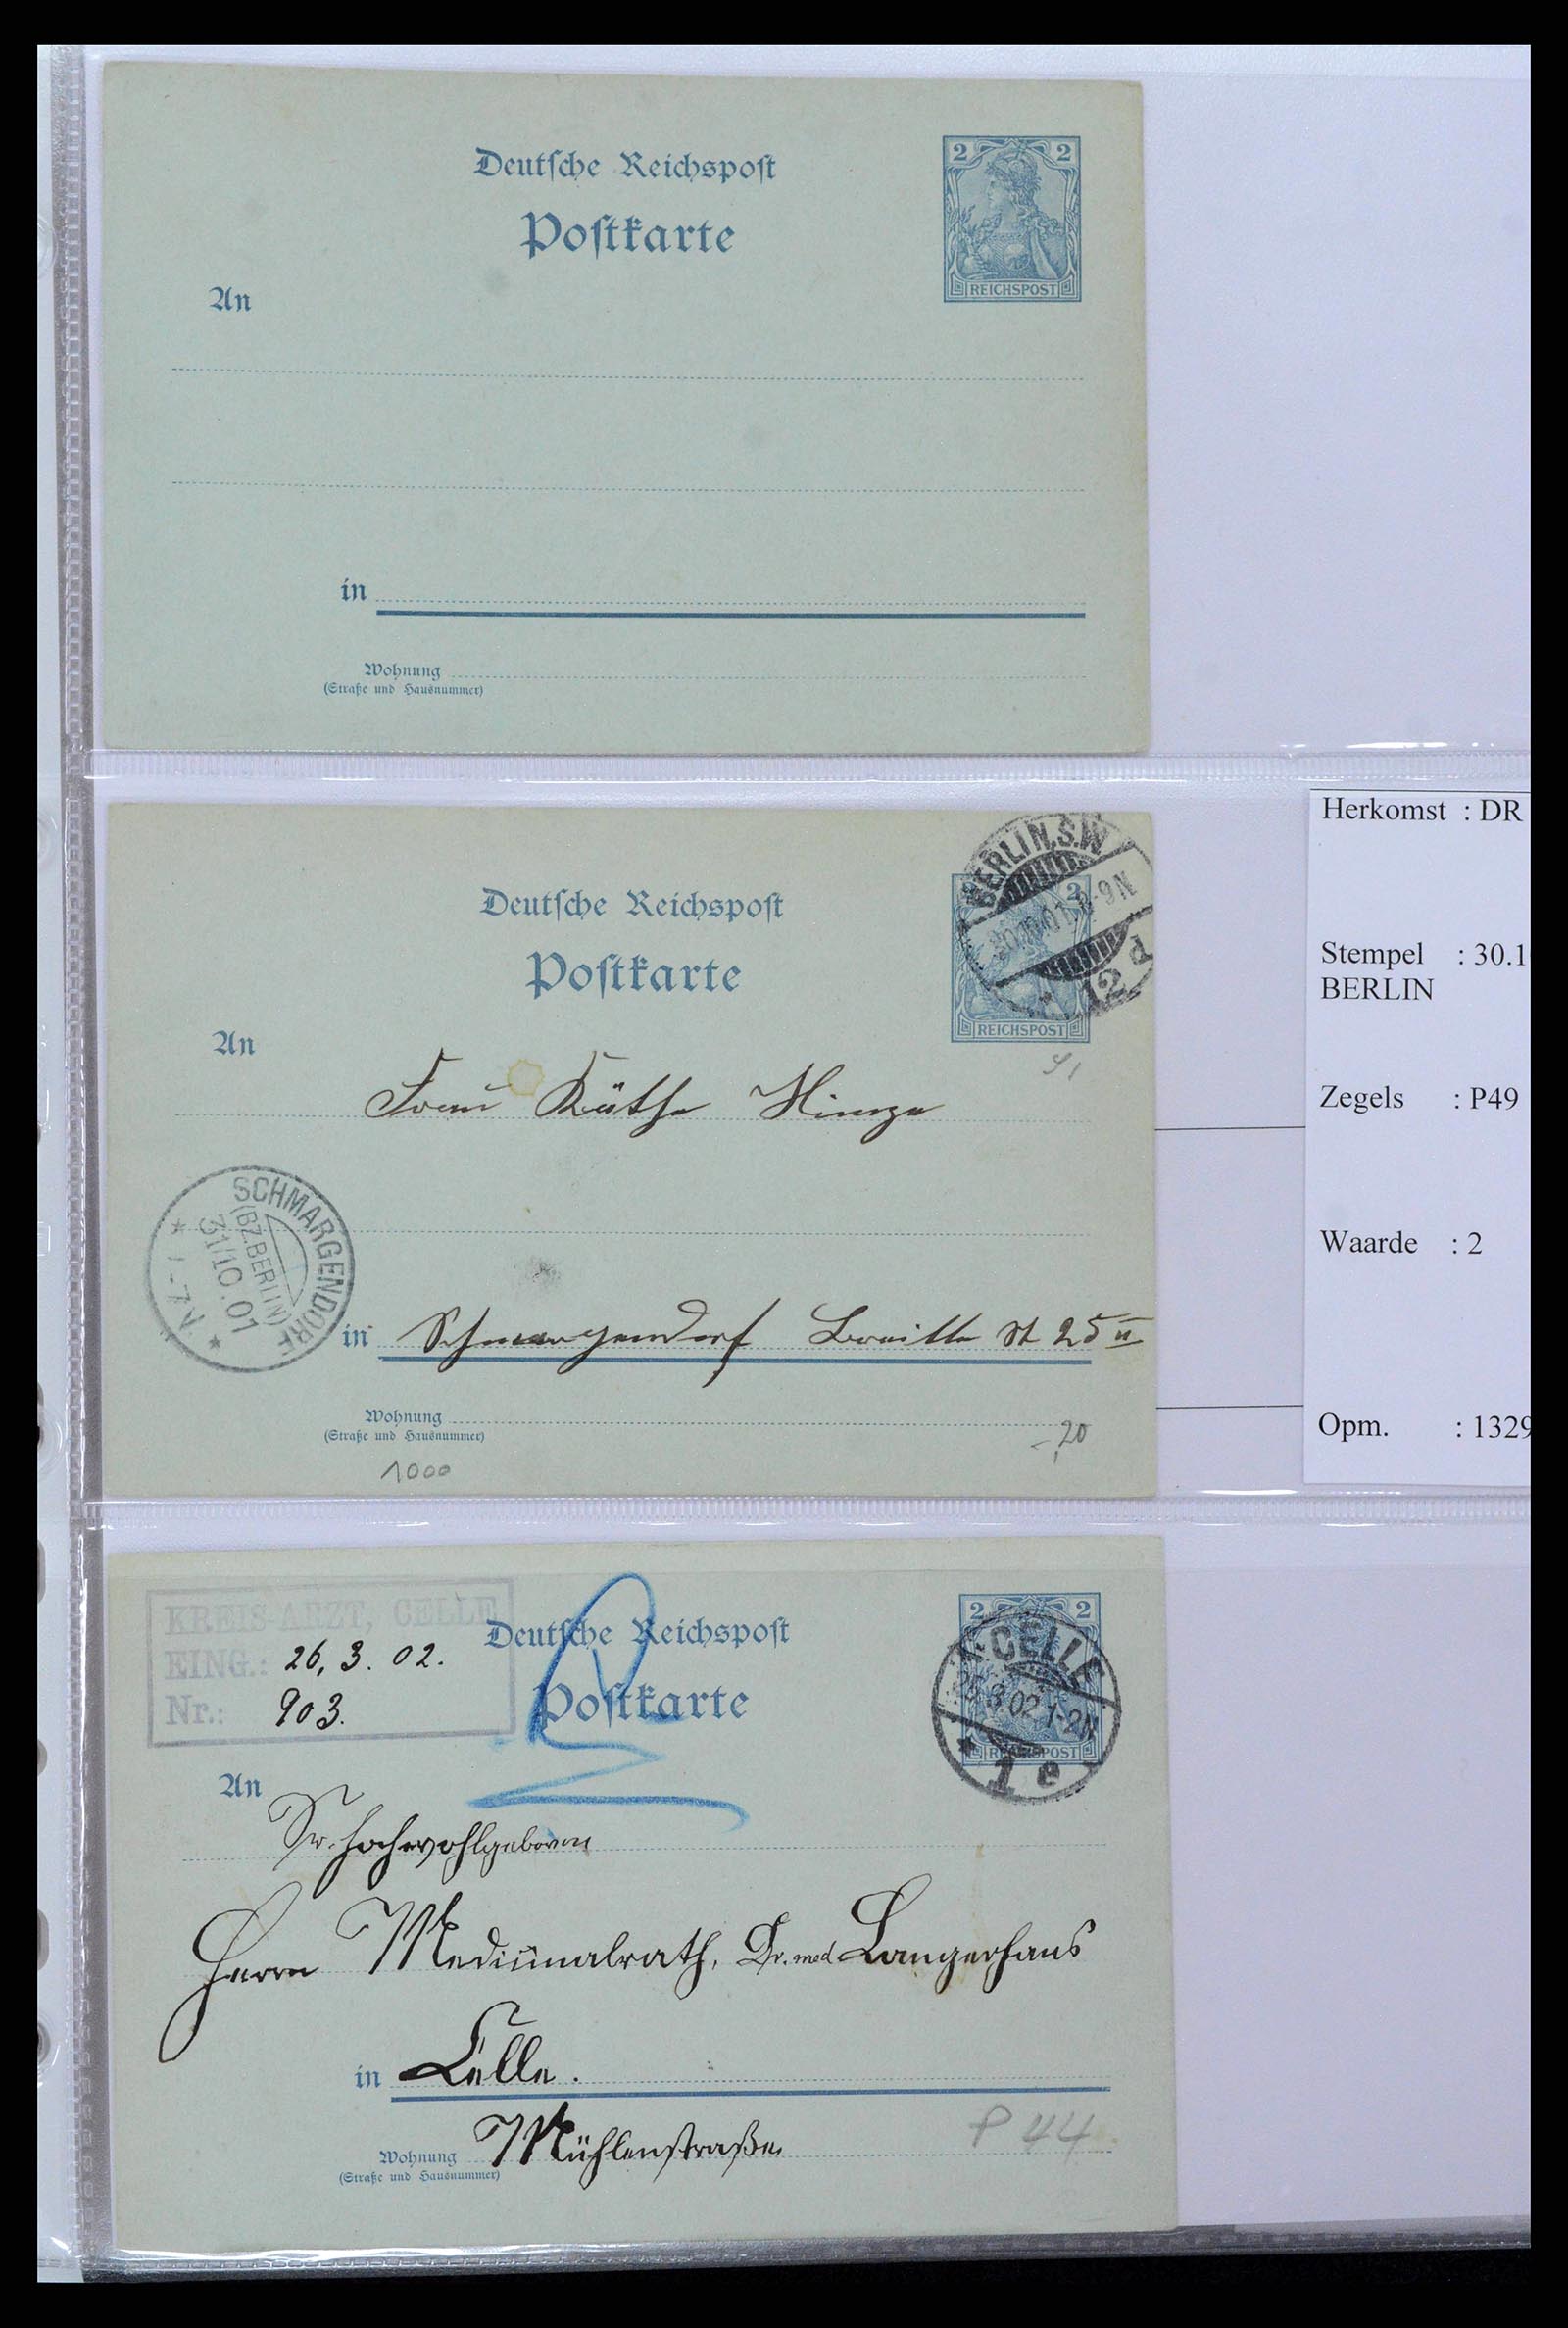 Deutsche Reichspost
2 2
Postkarte
REICHSPOST
An
in
Wohnung
(Straße und Hausnummer)
BERLIN, S.W.
2
Deutsche Reichspost
30.10.01. 8-9N
Postkarte
12 d
REICHSPOST
An
Frau Käthe Hinze
SCHMARGENDORF
(BZ.BERLIN)
31/10.01
7-7V.
in Schmargendorf St 25 II
Wohnung
(Straße und Hausnummer)
-,20
1000
Herkomst : DR
Stempel : 30.1
BERLIN
Zegels : P49
Waarde : 2
Opm. : 1329
KREIS ARZT, CELLE
EING.: 26.3.02.
Nr.: 903.
Deutsche Reichspost
Postkarte
2 2
CELLE
25.3.02.1-2N
1 e
REICHSPOST
An
Sr. Hochwohlgeboren
Herrn Medicinalrath, Dr. med Langerhans
in Celle.
P 44
Wohnung Mühlenstraße
(Straße und Hausnummer)